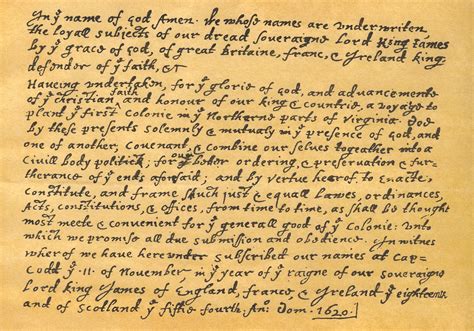 In yͤ name of God Amen. We whose names are underwriten,
the loyall subjects of our dread soveraigne Lord King James
by yͤ grace of God, of great Britaine, franc, & Ireland king,
defender of yͤ faith, &c
Haveing undertaken, for yͤ glorie of God, and advancemente
of yͤ christian faith and honour of our king & countrie, a voyage to
plant yͤ first colonie in yͤ Northerne parts of Virginia. Doe
by these presents solemnly & mutualy in yͤ presence of God, and
one of another, covenant, & combine our selves togeather into a
Civill body politick; for our better ordering, & preservation & fur-
therance of yͤ ends aforesaid; and by vertue hearof to enacte,
constitute, and frame shuch just & equall Lawes, ordinances,
Acts, constitutions, & offices, from time to time, as shall be thought
most meete & convenient for yͤ generall good of yͤ Colonie: unto
which we promise all due submission and obedience. In witnes
wherof we have hereunder subscribed our names at Cap-
Codd yͤ .11. of November, in yͤ year of yͤ raigne of our soveraigne
Lord king James of England, france, & Ireland yͤ eighteenth
and of Scotland yͤ fiftie fourth. Anͦ: Dom. 1620.